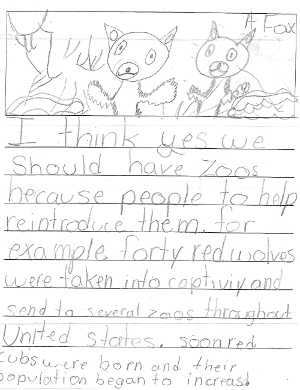 A Fox
I think yes we
should have zoos
because people to help
reintroduce them. for
example, forty red wolves
were taken into captiviy and
send to several zoos throughout
United states. soon red
cubs were born and their
population began to increas